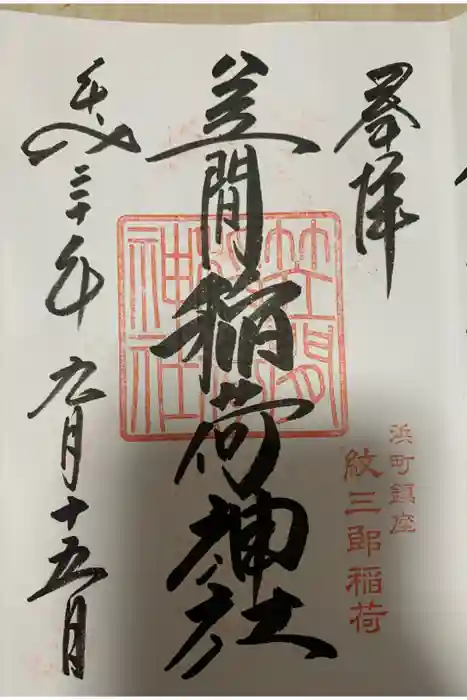 奉拝
浜町鎮座
紋三郎稲荷
笠間稲荷神社
笠間
稲荷
神社
平成三十年九月十五日